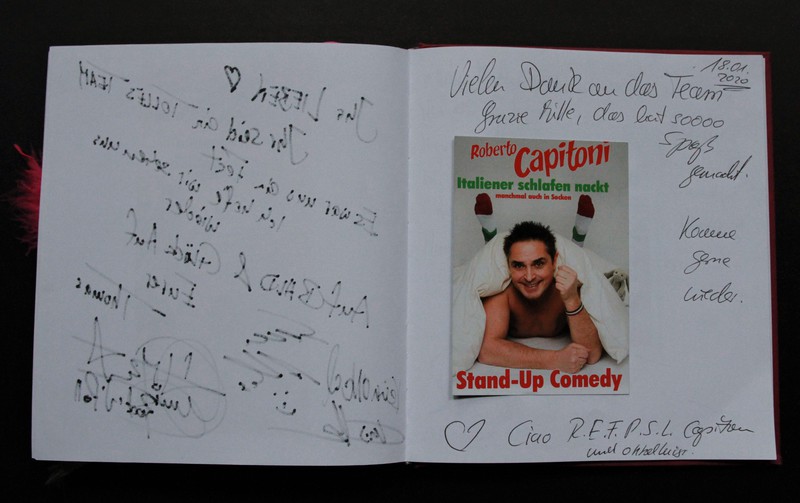 Ihr LIEBEN ♡
Ihr seid ein TOLLES TEAM
Es war uns ein Fest
Ich hoffe wir sehen uns
wieder
Auf BALD & Glück Auf
Euer
Thomas
18.01.
2020
Vielen Dank an das Team
Grazie Mille, das hat soooo
Spaß
gemacht.
Roberto Capitoni
Italiener schlafen nackt
manchmal auch in Socken
Stand-Up Comedy
Komme
gerne
wieder.
♡ Ciao R.E.F.P.S.L. Capitoni
und